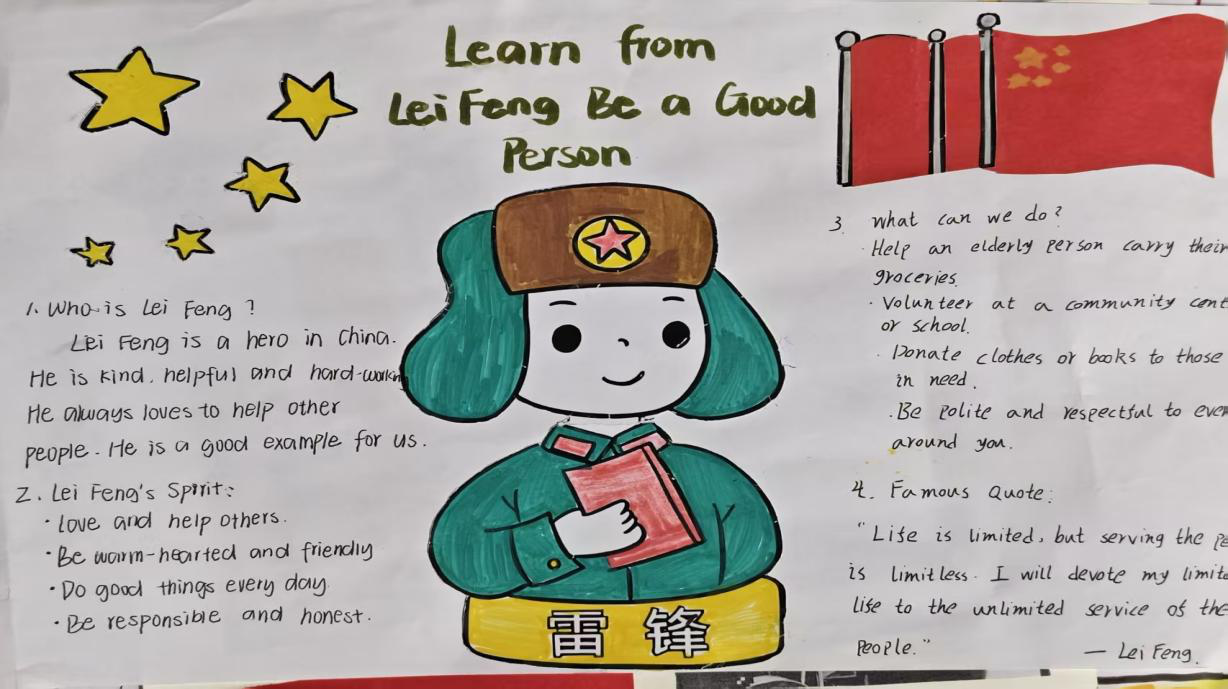 Learn from
Lei Feng Be a Good
Person
1. Who is Lei Feng ?
Lei Feng is a hero in China.
He is kind, helpful and hard-working
He always loves to help other
people. He is a good example for us.
2. Lei Feng's Spirit:
· Love and help others.
· Be warm-hearted and friendly
· Do good things every day.
· Be responsible and honest.
雷锋
3. What can we do?
· Help an elderly person carry their
groceries.
· Volunteer at a community cent
or school.
· Donate clothes or books to those
in need.
· Be polite and respectful to ever
around you.
4. Famous Quote:
"Life is limited, but serving the pe
is limitless. I will devote my limite
life to the unlimited service of the
people."
— Lei Feng.